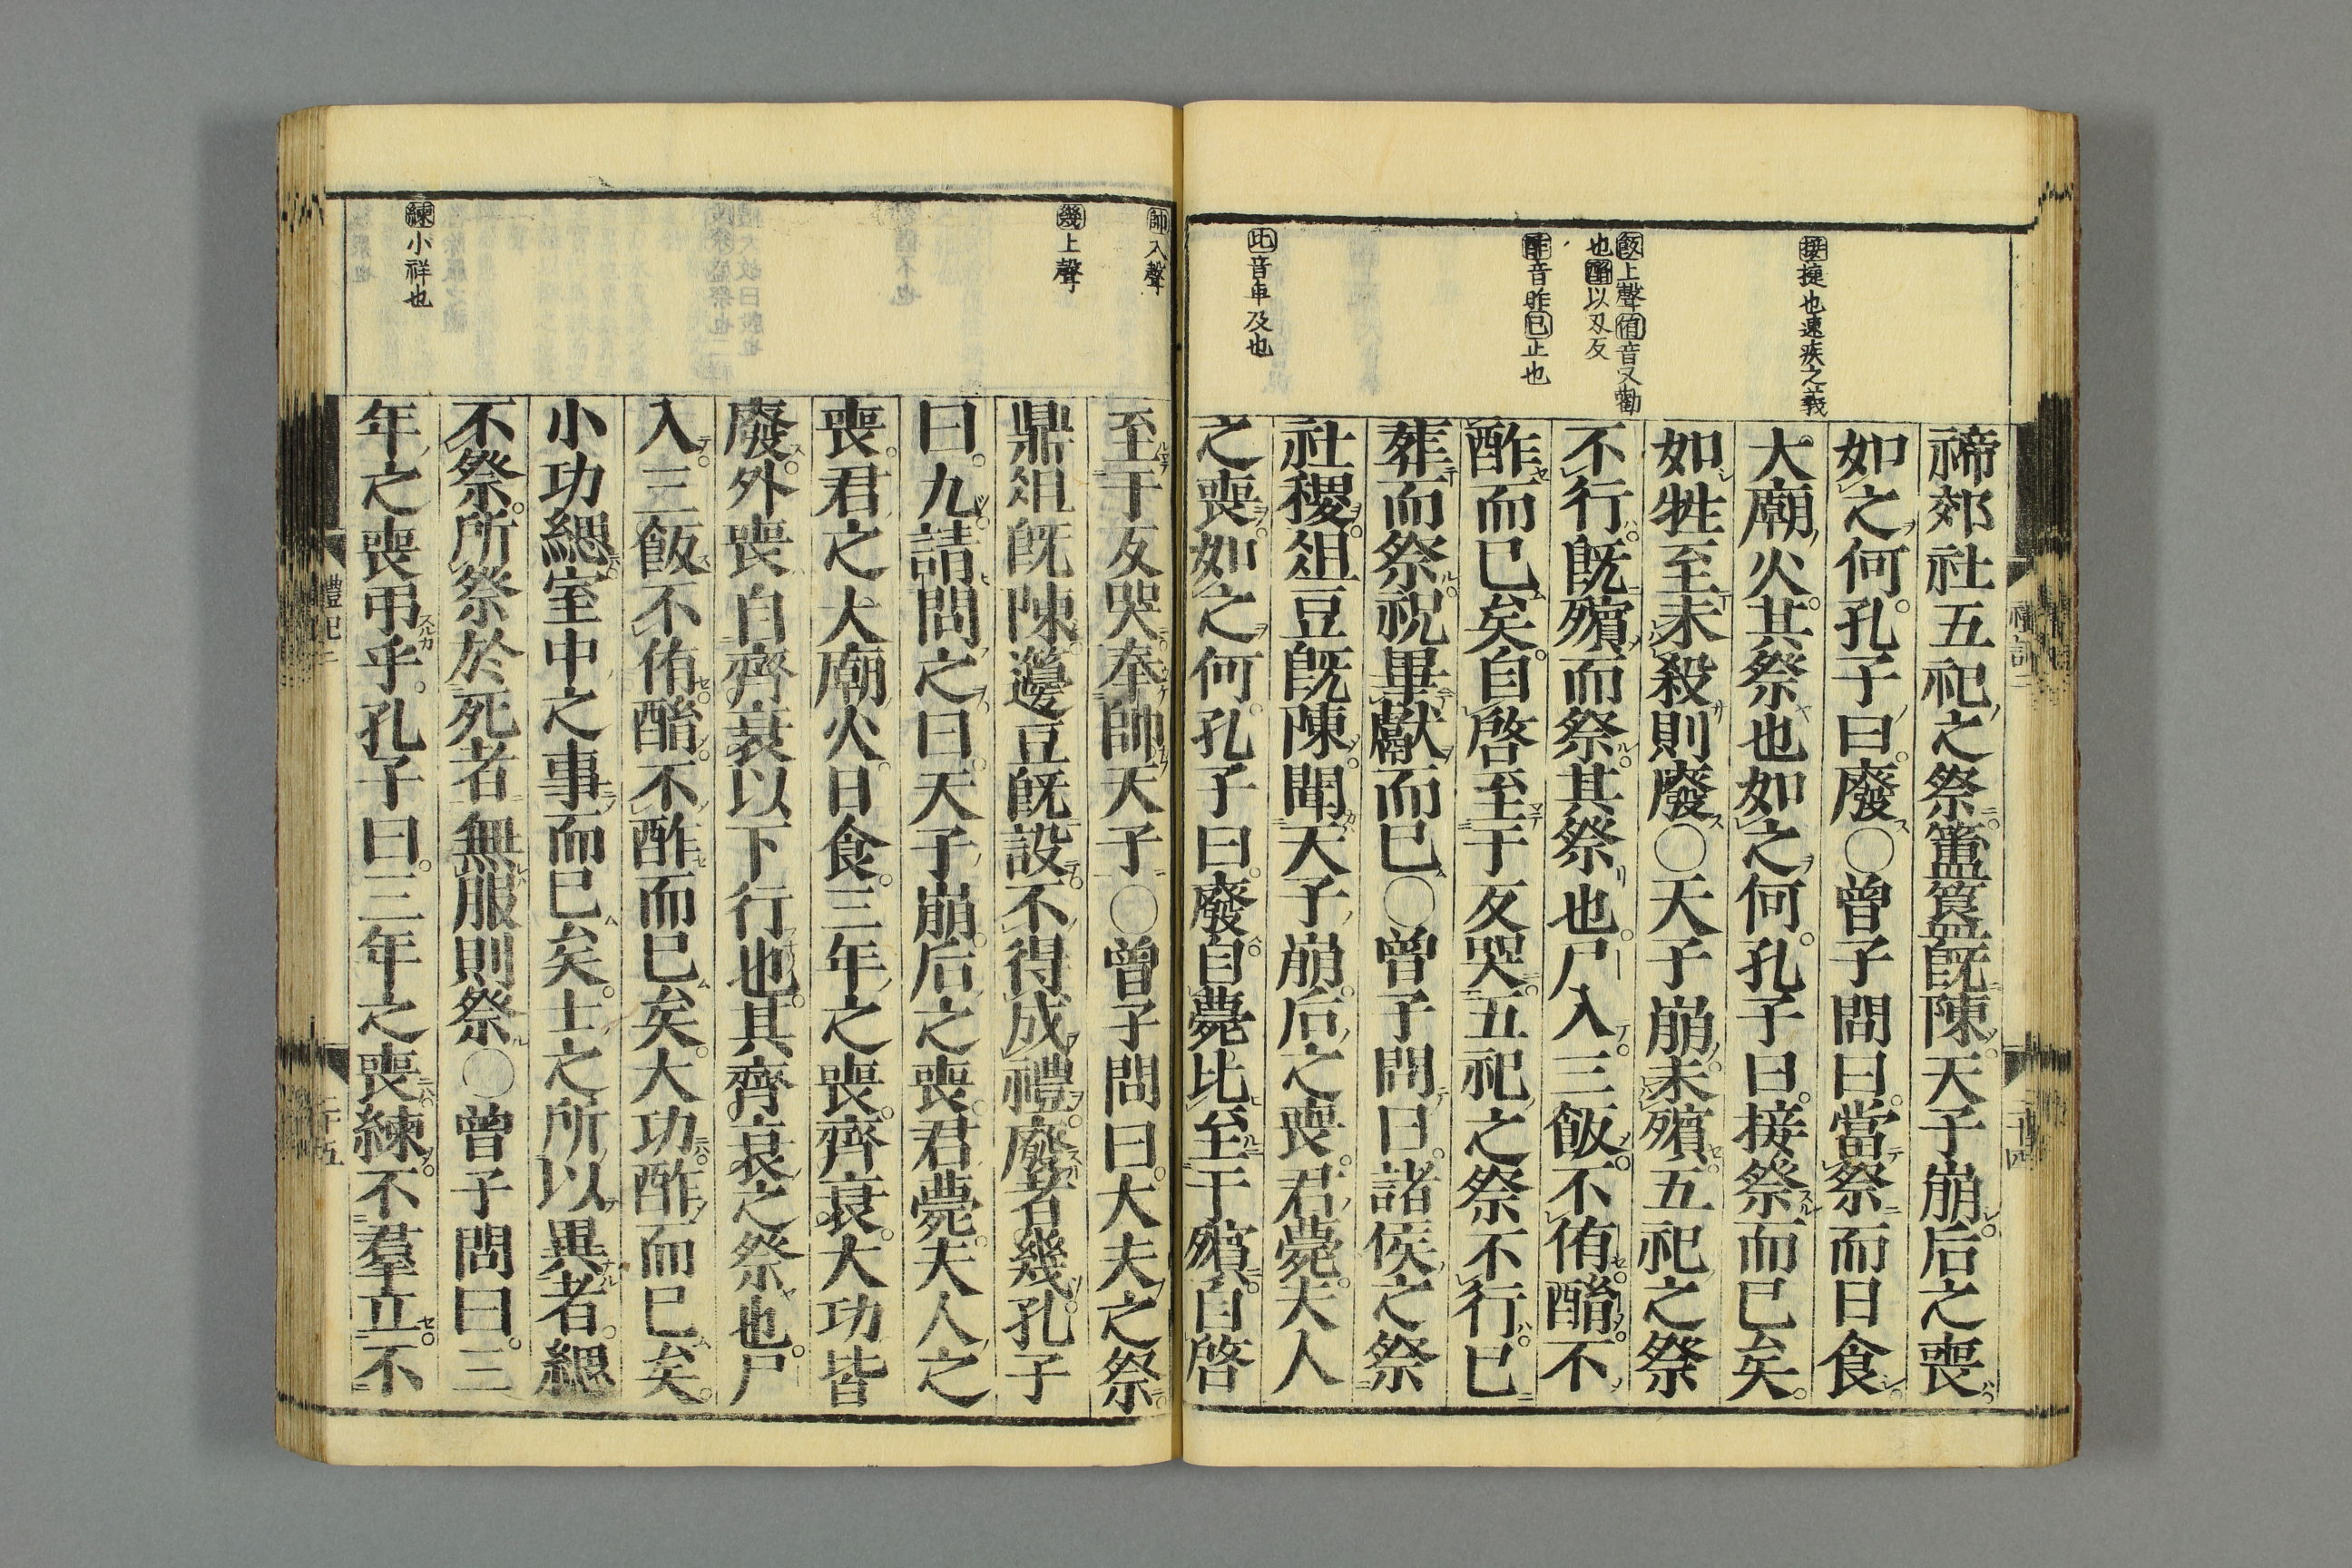 接捷也速疾之義
飯上聲侑音又勸
也酳以刄反
酢音昨已止也
比音卑及也
禘郊社五祀之祭簠簋既陳天子崩后之喪
如之何孔子曰廢○曾子問曰當祭而日食
大廟火其祭也如之何孔子曰接祭而已矣
如牲至未殺則廢○天子崩未殯五祀之祭
不行既殯而祭其祭也尸入三飯不侑酳不
酢而已矣自啓至于反哭五祀之祭不行已
葬而祭祝畢獻而已○曾子問曰諸侯之祭
社稷俎豆既陳聞天子崩后之喪君薨夫人
之喪如之何孔子曰廢自薨比至于殯自啓
帥入聲
幾上聲
練小祥也
至于反哭奉帥天子○曾子問曰大夫之祭
鼎俎既陳籩豆既設不得成禮廢者幾孔子
曰九請問之曰天子崩后之喪君薨夫人之
喪君之大廟火日食三年之喪齊衰大功皆
廢外喪自齊衰以下行也其齊衰之祭也尸
入三飯不侑酳不酢而已矣大功酢而已矣
小功緦室中之事而已矣士之所以異者緦
不祭所祭於死者無服則祭○曾子問曰三
年之喪弔乎孔子曰三年之喪練不羣立不
禮記二
二十五